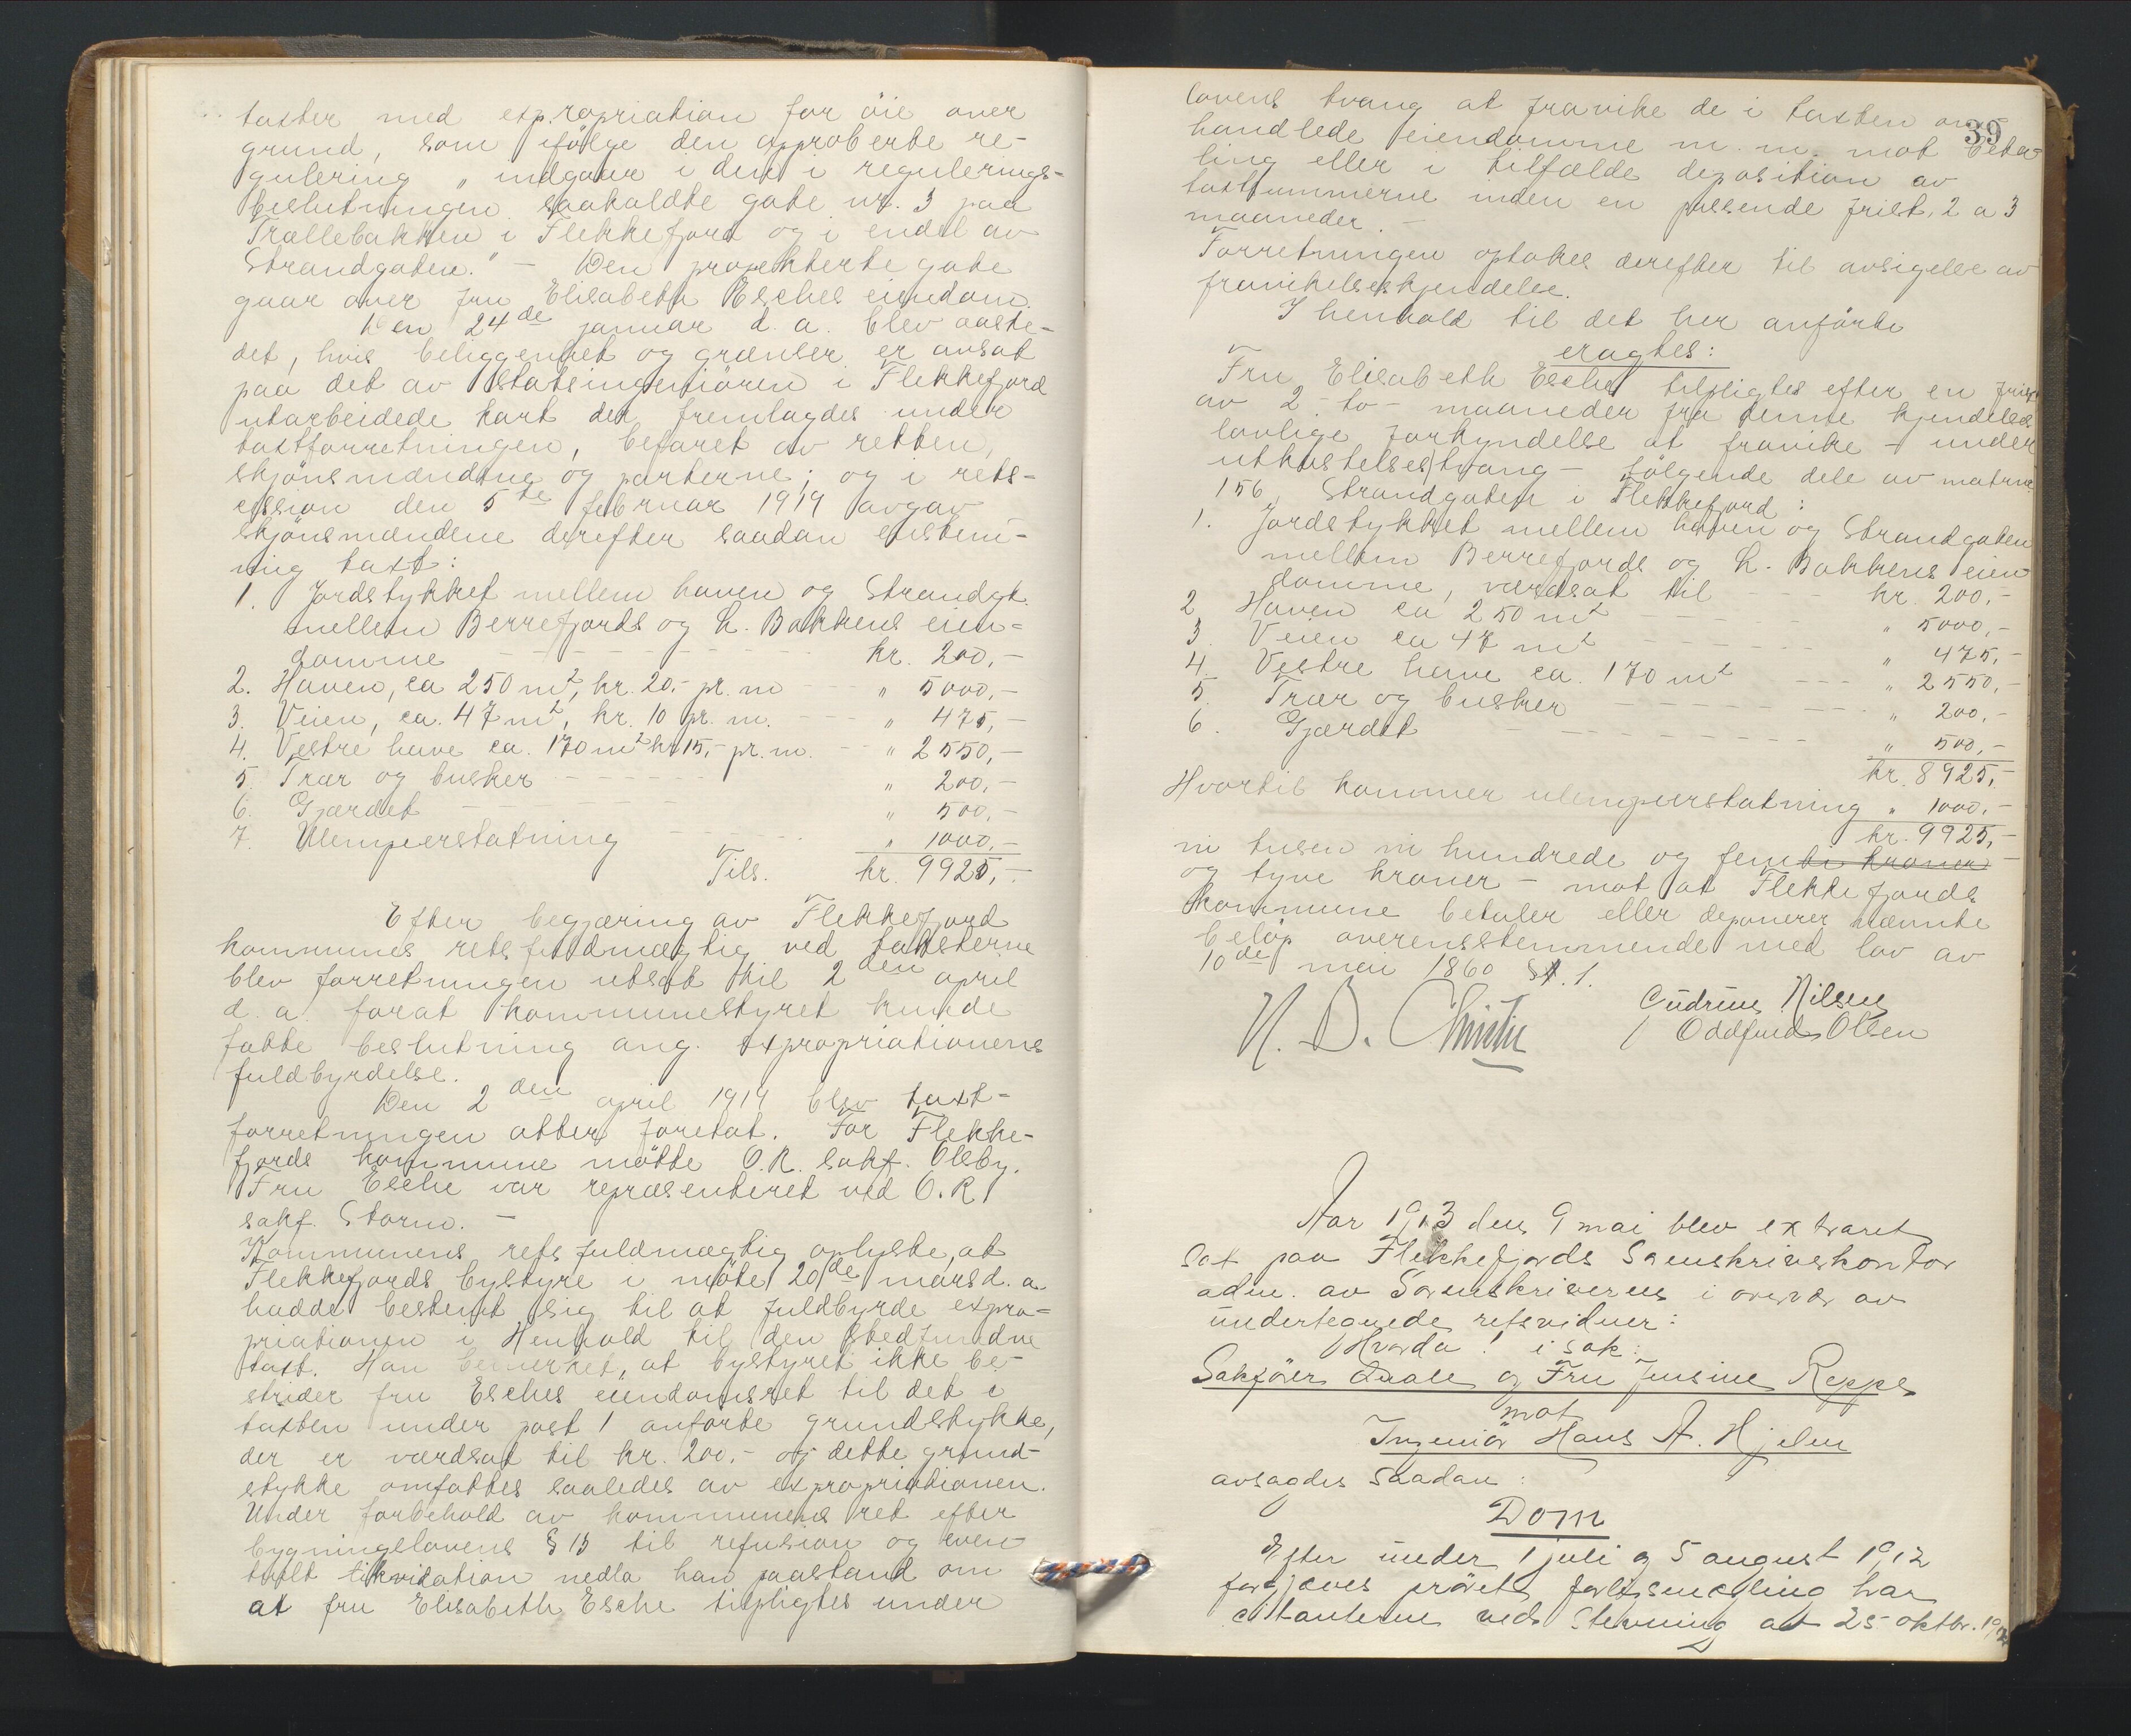 taxter med expropriation for öie over
grund, som ifölge den approberte re-
gulering „ indgaar i den i regulerings-
beslutningen saakaldte gate nr. 3 paa
Trællebakken i Flekkefjord og i endel av
Strandgaten." – Den projekterte gate
gaar over fru Elisabeth Esches eiendom.
Den 24de januar d. a. blev aaste-
det, hvis beliggenhet og grænser er avsat
paa det av Statsingeniören i Flekkefjord
utarbeidede kart der fremlagdes under
taxtforretningen, befaret av retten,
skjönsmændene og parterne; og i rets-
session den 5te februar 1914 avgav
skjönsmændene derefter saadan enstem-
mig taxt:
1. Jordstykket mellem haven og Strandgt.
mellem Berrefjords og L. Bakkens eien-
domme – – – kr. 200,-
2. Haven, ca 250 m2, kr. 20,- pr. m – „ 5000,-
3. Veien, ca. 47 m2, kr. 10 pr. m. – – „ 475,-
4. Vestre have ca. 170 m2 kr 15,- pr. m. – „ 2550,-
5. Trær og busker – – – „ 200,-
6. Gjærdet – – – „ 500,-
7. Ulemperstatning – – – „ 1000,-
Tils. kr. 9925,-
Efter begjæring av Flekkefjord
kommunes retsfuldmægtig ved taksterne
blev forretningen utsat til 2den april
d. a. forat kommunestyret kunde
fatte beslutning ang. expropriationens
fuldbyrdelse.
Den 2den april 1914 blev taxt-
forretningen atter foretat. For Flekke-
fjords kommune mötte O.R. sakf. Olsby.
Fru Esche var repræsenteret ved O. R.
sakf. Storm. –
Kommunens retsfuldmægtig oplyste, at
Flekkefjords bystyre i möte 20de mars d. a.
hadde bestemt sig til at fuldbyrde expro-
priationen i Henhold til den stedfundne
taxt. Han bemerket, at bystyret ikke be-
strider fru Esches eiendomsret til det i
taxten under post 1 anförte grundstykke,
der er værdsat til kr. 200.- og dette grund-
stykke omfattes saaledes av expropriationen.
Under forbehold av kommunens ret efter
bygningslovens § 13 til refusion og even-
tuelt likvidation nedla han paastand om
at fru Elisabeth Esche tilpligtes under
39
lovens tvang at fravike de i taxten om-
handlede eiendomme m. m. mot beta-
ling eller i tilfælde deposition av
taxtsummerne inden en passende frist, 2 a 3
maaneder. –
Forretningen optokes derefter til avsigelse av
fravikelseskjendelse.
I henhold til det her anförte
eragtes:
Fru Elisabeth Esche tilpligtes efter en frist
av 2 - to - maaneder fra denne kjendelses
lovlige forkyndelse at fravike – under
utkastelsestvang – fölgende dele av matrnr
156, Strandgaten i Flekkefjord:
1. Jordstykket mellem haven og Strandgaten
mellem Berrefjords og L. Bakkens eien
domme, værdsat til – – kr. 200,-
2 Haven ca 250 m2 – – – „ 5000,-
3. Veien ca 47 m2 – – – „ 475,-
4. Vestre have ca. 170 m2 – – – „ 2550,-
5. Trær og busker – – – „ 200,-
6. Gjærdet – – – „ 500,-
kr. 8925,-
Hvortil kommer ulemperstatning „ 1000,-
kr. 9925,-
ni tusen ni hundrede og femti kroner –
og tyve kroner – mot at Flekkefjords
kommune betaler eller deponerer nævnte
belöp overensstemmende med lov av
10de mai 1860 § 1.
N. B. Christie Gudrun Nilsen
/ Oddfrid Olsen
Aar 1913 den 9 mai blev extraret
sat paa Flekkefjords Sorenskriverkontor
adm. av Sorenskriveren i overvær av
undertegnede retsvidner:
Hvorda! i sak:
Sakförer Daale og Fru Jensine Reppe
mot
Ingeniör Hans A. Hjelm
avsagdes saadan:
Dom
Efter under 1 juli og 5 august 1912
forgjæves prövet forligsmægling har
citanterne ved Stevning at 25 oktbr. 1912